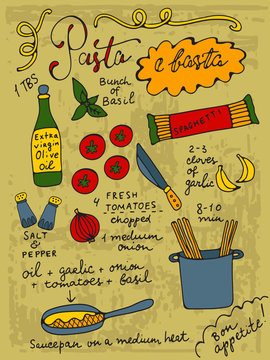 Pasta
e basta
1 TBS
Bunch
of
Basil
Extra
virgin
Olive
oil
SPAGHETTI
2-3
cloves
of
garlic
4 FRESH
TOMATOES
chopped
1 medium
onion
8-10
min
SALT
&
PEPPER
oil + garlic + onion
+ tomatoes + basil
Saucepan on a medium heat
Bon
appetite!